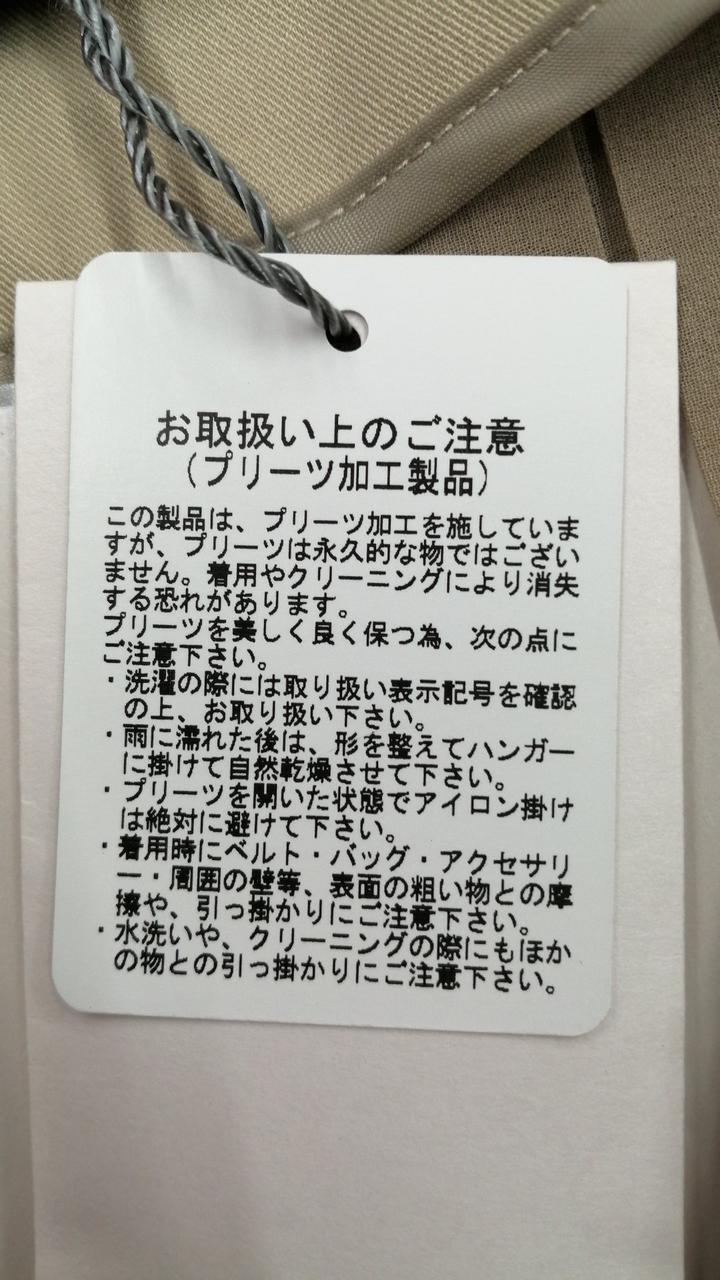 お取扱い上のご注意
(プリーツ加工製品)
この製品は、プリーツ加工を施していま
すが、プリーツは永久的な物ではござい
ません。着用やクリーニングにより消失
する恐れがあります。
プリーツを美しく良く保つ為、次の点に
ご注意下さい。
・洗濯の際には取り扱い表示記号を確認
の上、お取り扱い下さい。
・雨に濡れた後は、形を整えてハンガー
に掛けて自然乾燥させて下さい。
・プリーツを開いた状態でアイロン掛け
は絶対に避けて下さい。
・着用時にベルト・バッグ・アクセサリ
ー・周囲の壁等、表面の粗い物との摩
擦や、引っ掛かりにご注意下さい。
・水洗いや、クリーニングの際にもほか
の物との引っ掛かりにご注意下さい。